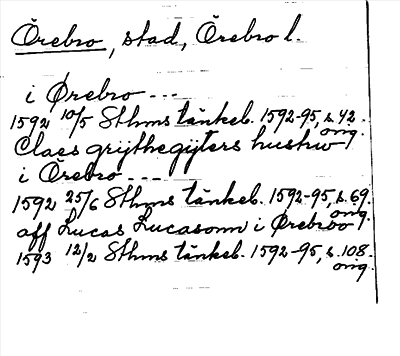 Örebro, stad, Örebro l.
i Ørebro ---
1592 10/5 Sthms tänkeb. 1592-95, s. 42.
orig.
Claes grythegijters hustrw
i Örebro ---
1592 25/6 Sthms tänkeb. 1592-95, s. 69.
orig.
aff Lucas Lucasonn i Ørebroo
1593 12/2 Sthms tänkeb. 1592-95, s. 108.
orig.